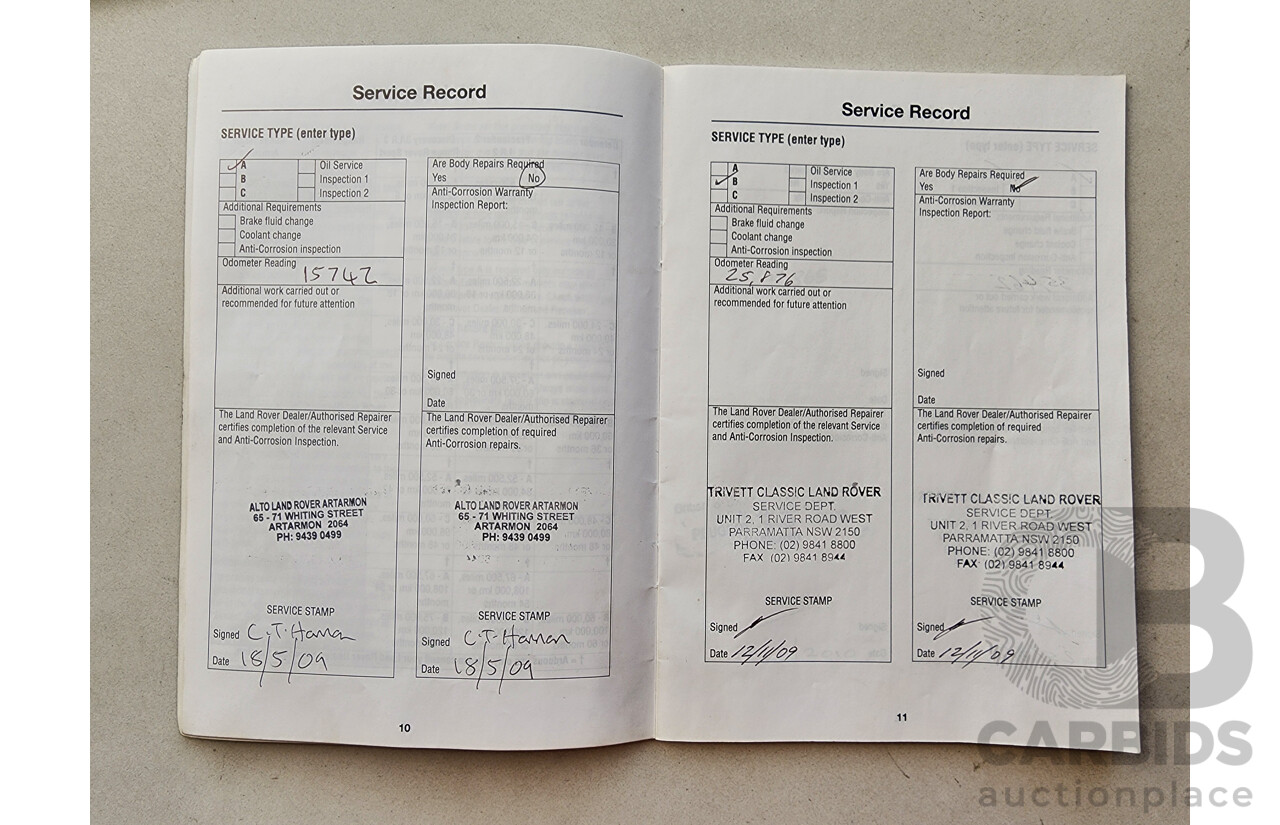 Service Record
SERVICE TYPE (enter type)
A
B
C
Oil Service
Inspection 1
Inspection 2
Additional Requirements
Brake fluid change
Coolant change
Anti-Corrosion inspection
Odometer Reading
15742
Additional work carried out or
recommended for future attention
The Land Rover Dealer/Authorised Repairer
certifies completion of the relevant Service
and Anti-Corrosion Inspection.
ALTO LAND ROVER ARTARMON
65 - 71 WHITING STREET
ARTARMON 2064
PH: 9439 0499
SERVICE STAMP
Signed
Date 18/5/09
Are Body Repairs Required
Yes No
Anti-Corrosion Warranty
Inspection Report:
Signed
Date
The Land Rover Dealer/Authorised Repairer
certifies completion of required
Anti-Corrosion repairs.
ALTO LAND ROVER ARTARMON
65 - 71 WHITING STREET
ARTARMON 2064
PH: 9439 0499
SERVICE STAMP
Signed
Date 18/5/09
10
Service Record
SERVICE TYPE (enter type)
A
B
C
Oil Service
Inspection 1
Inspection 2
Additional Requirements
Brake fluid change
Coolant change
Anti-Corrosion inspection
Odometer Reading
25,876
Additional work carried out or
recommended for future attention
The Land Rover Dealer/Authorised Repairer
certifies completion of the relevant Service
and Anti-Corrosion Inspection.
TRIVETT CLASSIC LAND ROVER
SERVICE DEPT.
UNIT 2, 1 RIVER ROAD WEST
PARRAMATTA NSW 2150
PHONE: (02) 9841 8800
FAX (02) 9841 8944
SERVICE STAMP
Signed
Date 12/11/09
Are Body Repairs Required
Yes No
Anti-Corrosion Warranty
Inspection Report:
Signed
Date
The Land Rover Dealer/Authorised Repairer
certifies completion of required
Anti-Corrosion repairs.
TRIVETT CLASSIC LAND ROVER
SERVICE DEPT.
UNIT 2, 1 RIVER ROAD WEST
PARRAMATTA NSW 2150
PHONE: (02) 9841 8800
FAX (02) 9841 8944
SERVICE STAMP
Signed
Date 12/11/09
11
CARBIDS
auctionplace